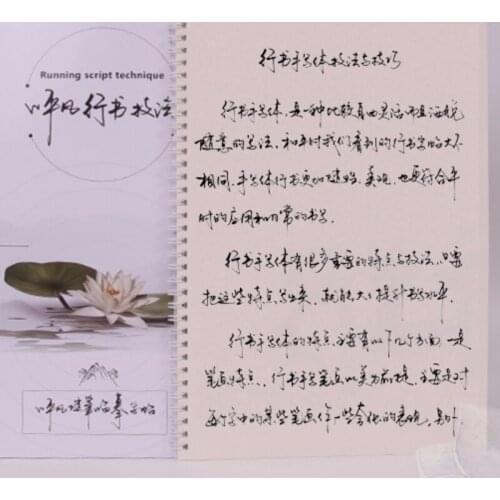 Running script technique
呼风行书技法
呼风随笔临摹字帖
行书手写体技法与技巧
行书手写体,是一种比较自由灵活而且洒脱
随意的写法,和平时我们看到的行书字帖大不
相同,手写体行书更加随性、美观,也更符合平
时的应用和日常的书写.
行书手写体有很多重要的特点与技法,只要
把这些特点写出来,就能大大提升书写水平.
行书手写体的特点,主要有以下几个方面,一是
笔画特点,行书手写笔画以美为前提,主要是对
每个字中的某些笔画作一些夸张的表现,另外